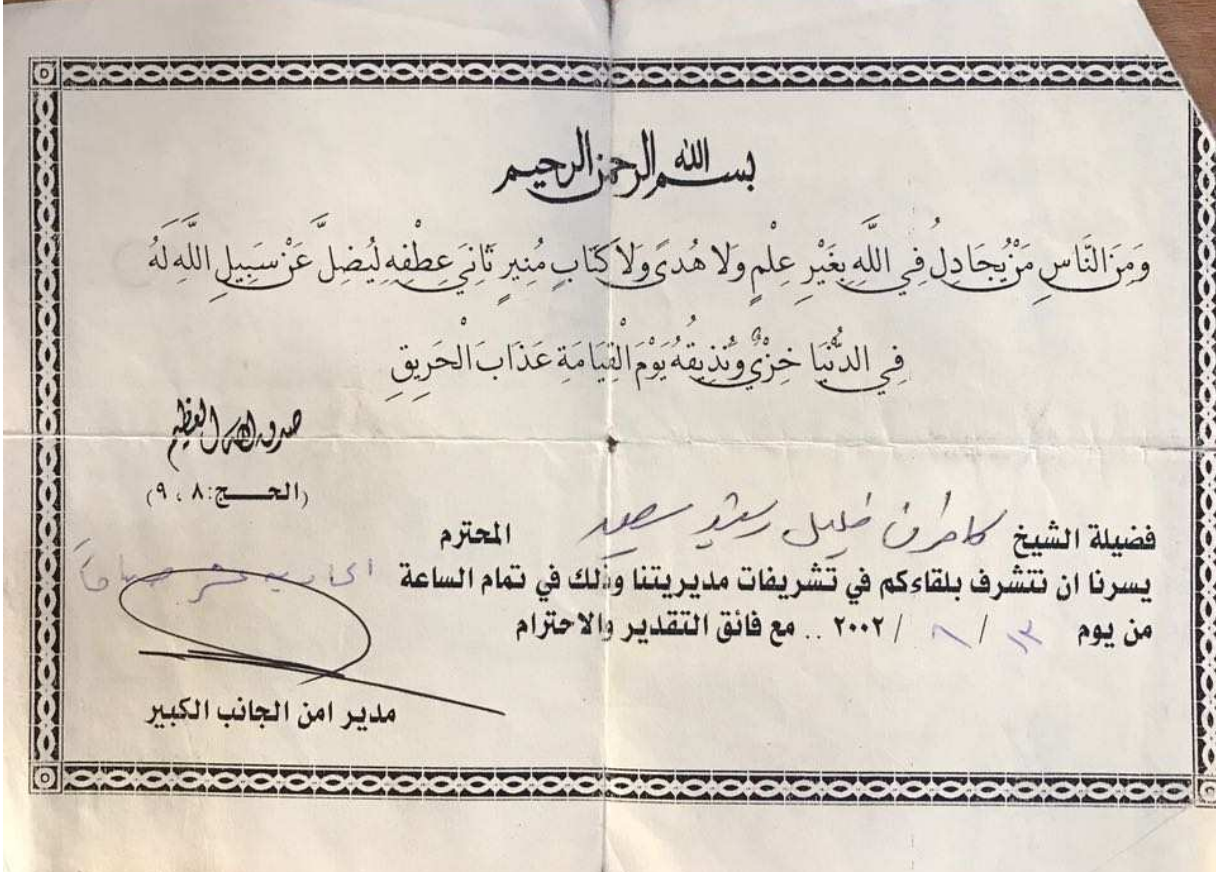 بسم الله الرحمن الرحيم
وَمِنَ النَّاسِ مَنْ يُجَادِلُ فِي اللَّهِ بِغَيْرِ عِلْمٍ وَلَا هُدًى وَلَا كِتَابٍ مُنِيرٍ ثَانِيَ عِطْفِهِ لِيُضِلَّ عَنْ سَبِيلِ اللَّهِ لَهُ
فِي الدُّنْيَا خِزْيٌ وَنُذِيقُهُ يَوْمَ الْقِيَامَةِ عَذَابَ الْحَرِيقِ
صدق الله العظيم
(الحـــج: ٨ ، ٩)
فضيلة الشيخ كامران خليل رشيد سعيد المحترم
يسرنا ان نتشرف بلقاءكم في تشريفات مديريتنا وذلك في تمام الساعة الحادية عشر صباحاً
من يوم ١٣ / ٨ / ٢٠٠٢ .. مع فائق التقدير والاحترام
مدير امن الجانب الكبير